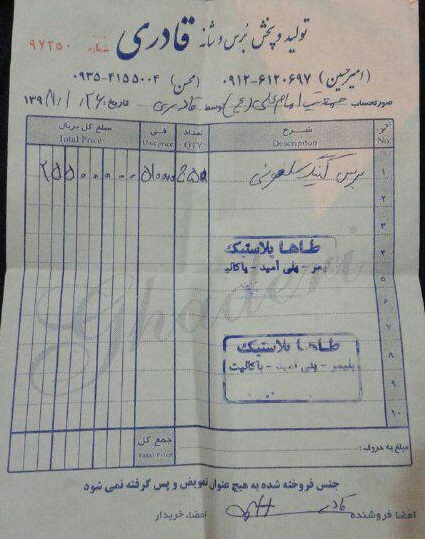 تولید و پخش بُرس و شانه قادری
شماره ۹۷۲۵۰
(امیرحسین) ۰۹۱۲-۶۱۲۰۶۹۷ (محسن) ۰۹۳۵-۴۱۵۵۰۰۴
صورتحساب جمعیت امام علی (یحیی) توسط قادری تاریخ: ۲۶ / ۱ / ۱۳۹۷
نمره No. شرح Description تعداد QTY فی Unit price مبلغ کل بریال Total Price
۱ برس گیند سلمونی ۵۱۰۰۰۰
۲
۳
۴
۵
۶
۷
۸
۹
۱۰
طاها پلاستیک
پلی آمید - باکالیت
Ghaderi
طاها پلاستیک
پلیمر - پلی آمید - باکالیت
جمع کل Total Price
مبلغ به حروف:
جنس فروخته شده به هیچ عنوان تعویض و پس گرفته نمی شود
امضا فروشنده امضاء خریدار